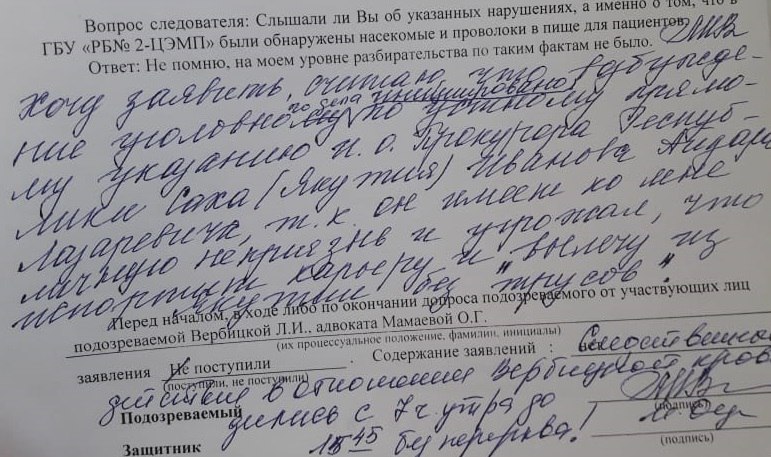 Вопрос следователя: Слышали ли Вы об указанных нарушениях, а именно о том, что в
ГБУ «РБ№ 2-ЦЭМП» были обнаружены насекомые и проволоки в пище для пациентов.
Ответ: Не помню, на моем уровне разбирательства по таким фактам не было.
Хочу заявить, считаю что возбужде-
ние уголовного дела инициировано по устному прямо-
му указанию и.о. Прокурора Респуб-
лики Саха (Якутия) Иванова Айдара
Лазаревича, т.к. он имеет ко мне
личную неприязнь и угрожал, что
испортит карьеру и вылечу из
Якутии без "трусов".
Перед началом, в ходе либо по окончании допроса подозреваемого от участвующих лиц
подозреваемой Вербицкой Л.И., адвоката Мамаевой О.Г.
(их процессуальное положение, фамилии, инициалы)
заявления Не поступили . Содержание заявлений : нет Следственные
(поступили, не поступили)
действия в отношении Вербицкой прово
Подозреваемый дились с 7 ч. утра до
(подпись)
Защитник 15 45 без перерыва!
(подпись)